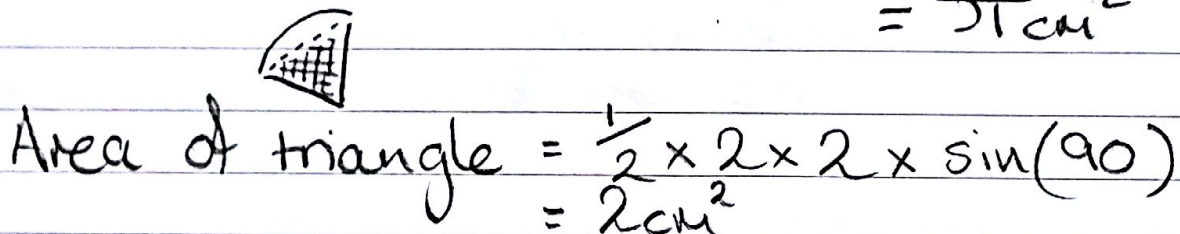 = π cm²
Area of triangle = 1/2 × 2 × 2 × sin(90)
= 2cm²